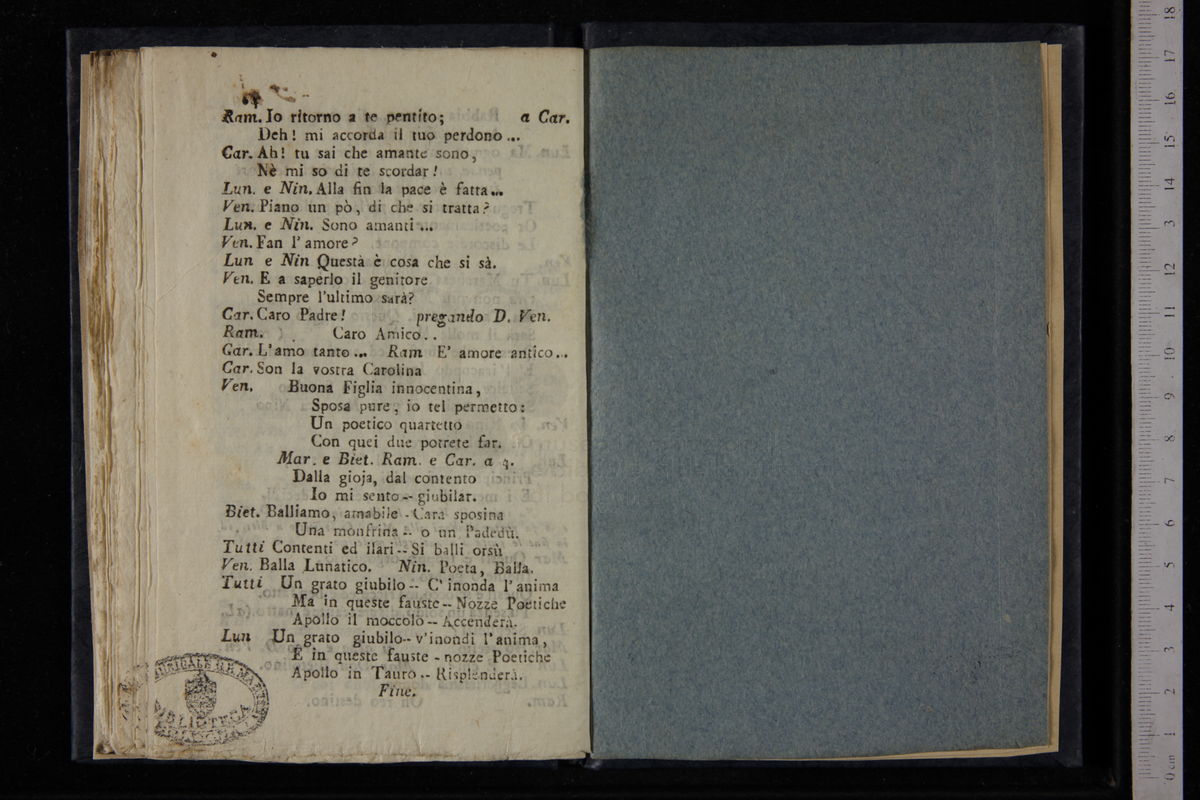 Ram. Io ritorno a te pentito; a Car.
Deh! mi accorda il tuo perdono ...
Car. Ah! tu sai che amante sono,
Nè mi so di te scordar!
Lun. e Nin. Alla fin la pace è fatta...
Ven. Piano un pò, di che si tratta?
Lun. e Nin. Sono amanti ...
Ven. Fan l'amore?
Lun e Nin Questà è cosa che si sà.
Ven. E a saperlo il genitore
Sempre l'ultimo sarà?
Car. Caro Padre! pregando D. Ven.
Ram. Caro Amico..
Car. L'amo tanto ... Ram E' amore antico...
Car. Son la vostra Carolina
Ven. Buona Figlia innocentina,
Sposa pure, io tel permetto:
Un poetico quartetto
Con quei due potrete far.
Mar. e Biet. Ram. e Car. a 4.
Dalla gioja, dal contento
Io mi sento -- giubilar.
Biet. Balliamo, amabile - Cara sposina
Una monfrina -- o un Padedù.
Tutti Contenti ed ilari -- Si balli orsù
Ven. Balla Lunatico. Nin. Poeta, Balla.
Tutti Un grato giubilo -- C'inonda l'anima
Ma in queste fauste -- Nozze Poetiche
Apollo il moccolo -- Accenderà.
Lun Un grato giubilo -- v'inondi l'anima,
E in queste fauste - nozze Poetiche
Apollo in Tauro -- Risplenderà.
Fine.
BIBLIOTECA
0 cm 1 2 3 4 5 6 7 8 9 10 11 12 13 14 15 16 17 18